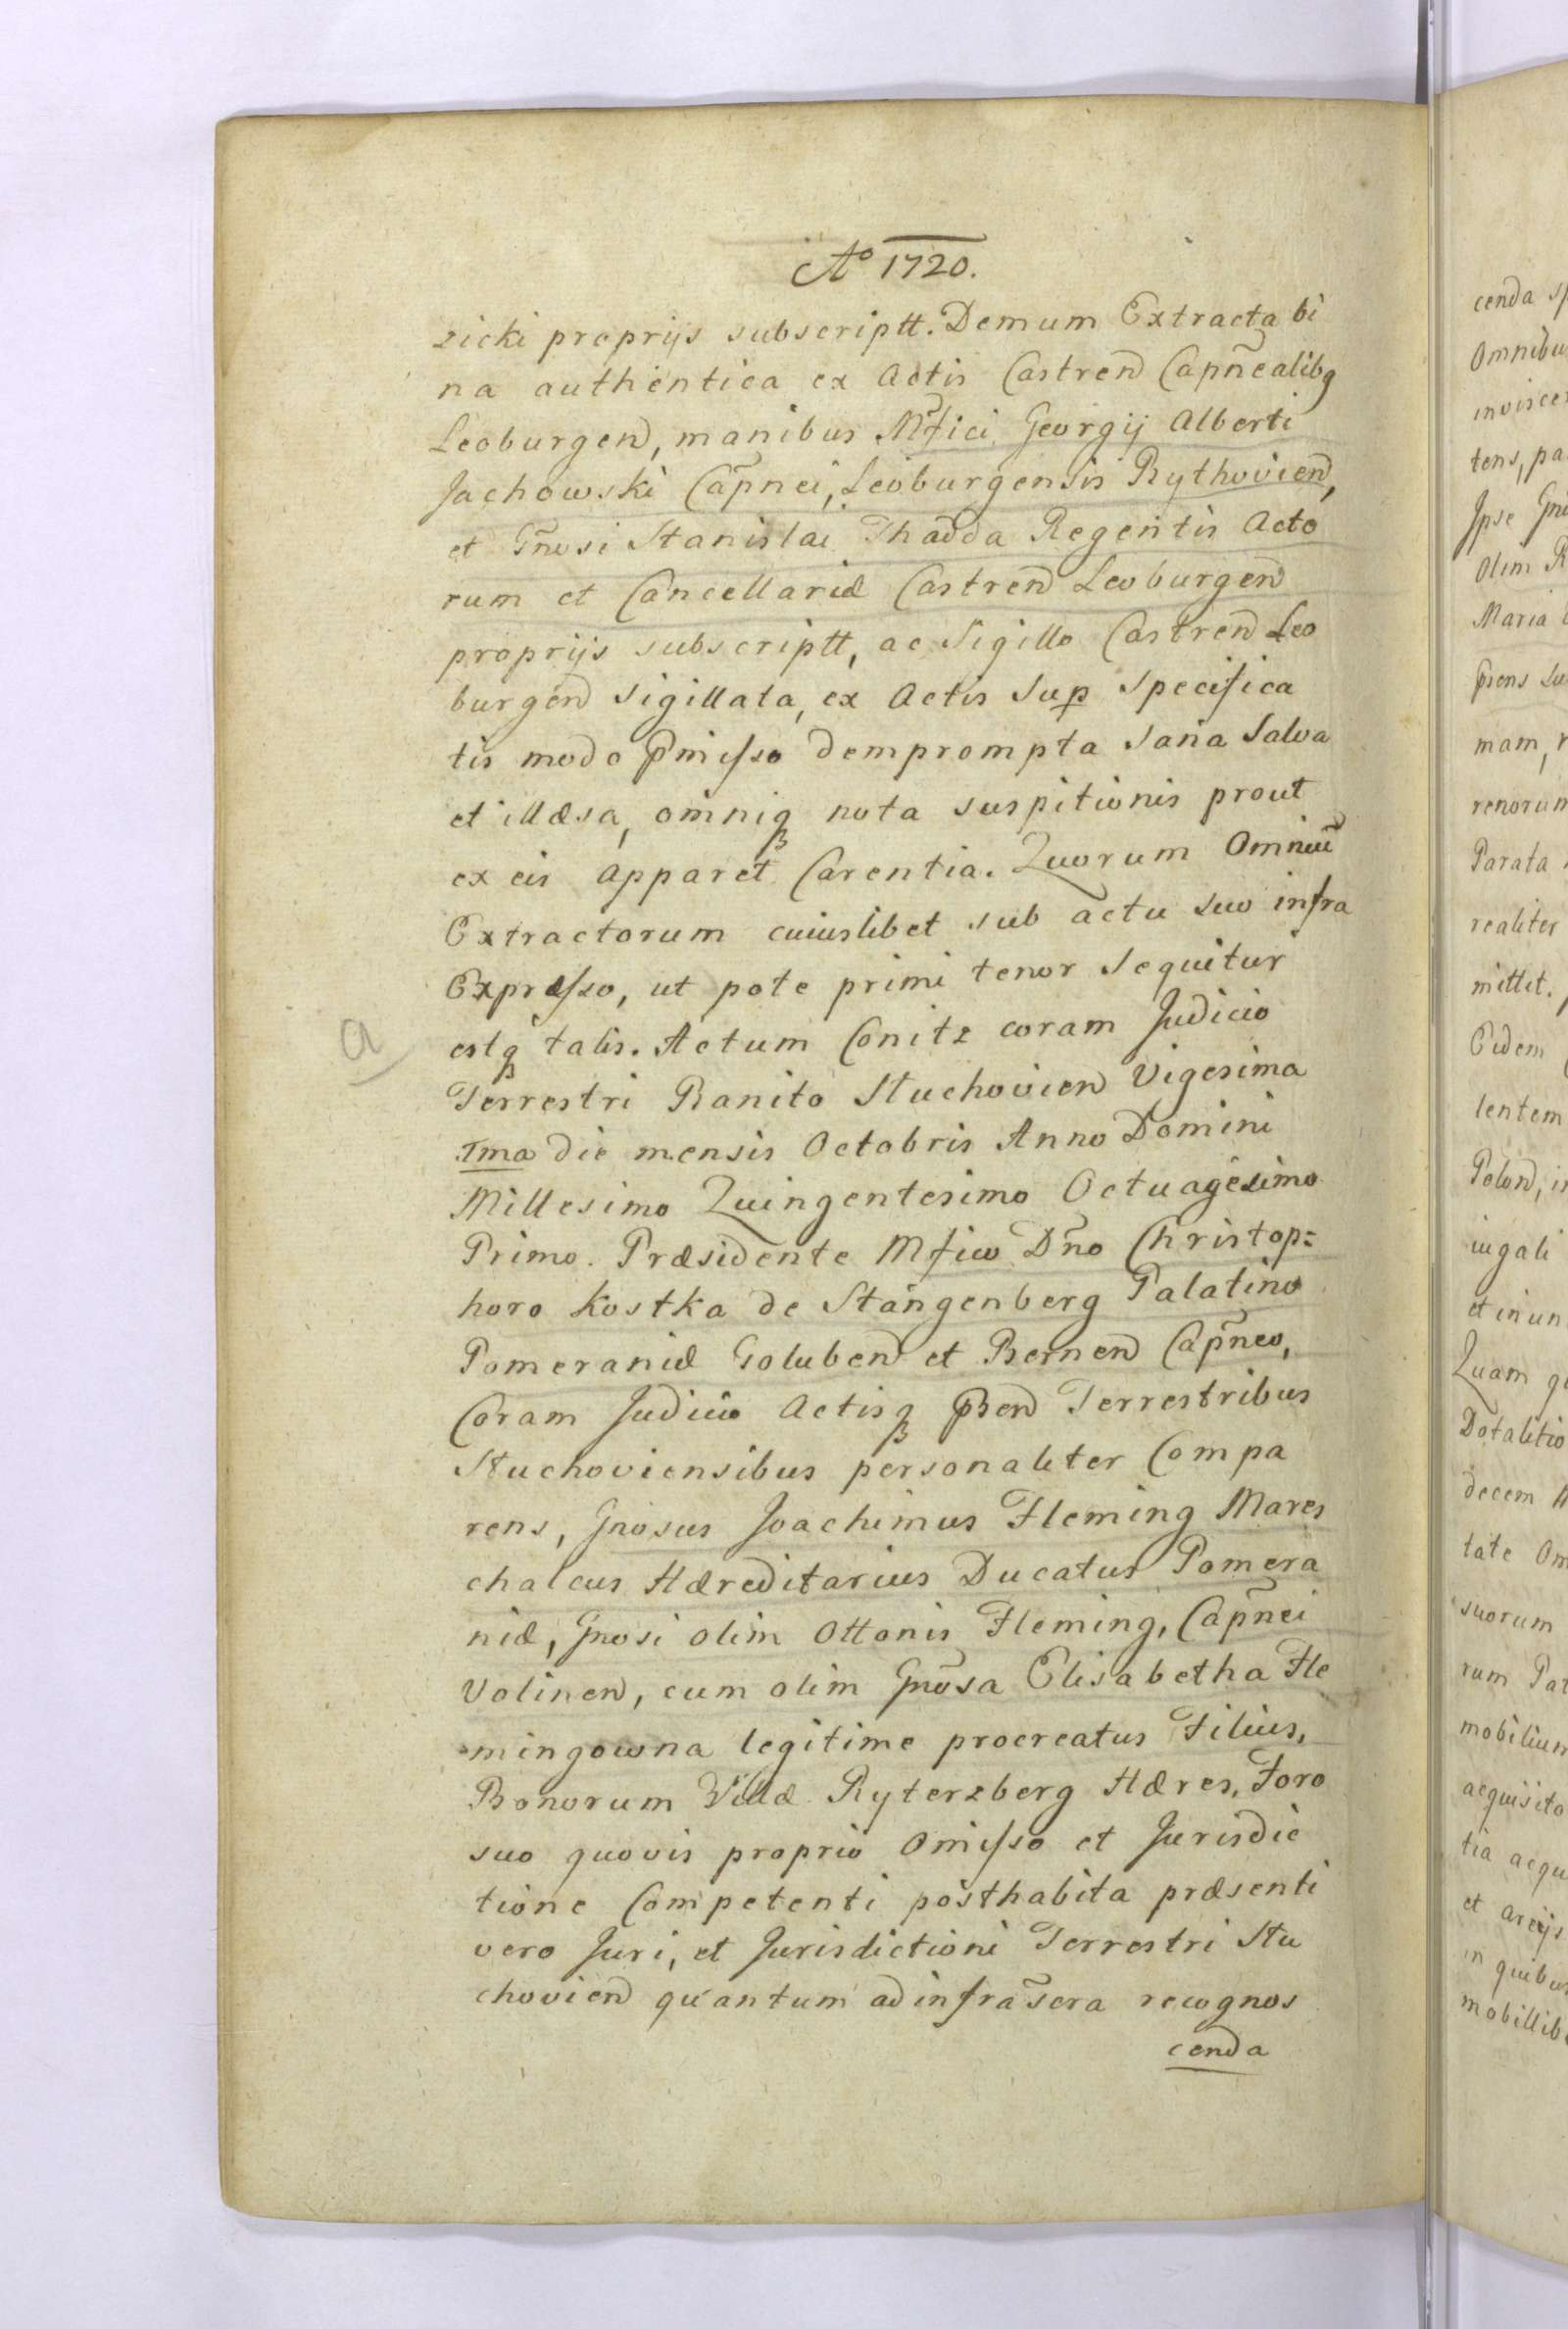 Aº 1720.
zicki proprijs subscriptt. Demum Extracta bi
na authentica ex Actis Castren̄ Capn̄ealibq
Leoburgen̄, manibus Mfici Georgij Alberti
Jachowski Cap̄nei, Leoburgensis Rythovien̄,
et Gn̄osi Stanislai Thadda Regentis Acto
rum et Cancellariæ Castren̄ Leoburgen̄
proprijs subscriptt, ac Sigillo Castren̄ Leo
burgen̄ sigillata, ex Actis Sup specifica
tis modo Pmisso demprompta sana salva
et illæsa, omniq nota suspitionis prout
ex eis apparet Carentia. Quorum Omniū
Extractorum cuiuslibet sub actu suo infra
Expræsso, ut pote primi tenor sequitur
estq talis. Actum Conitz coram Judicio
Terrestri Banito Stuchovien̄ Vigesima
1ma die mensis Octobris Anno Domini
Millesimo Quingentesimo Octuagesimo
Primo. Præsidente Mfico Dn̄o Christop=
horo Kostka de Stangenberg Palatino
Pomeraniæ Goluben̄ et Bernen̄ Cap̄neo,
Coram Judicio Actisq Psen̄ Terrestribus
Stuchoviensibus personaliter Compa
rens, Gnosus Joachimus Fleming Mares
chalcus Hæreditarius Ducatus Pomera
niæ, Gnosi olim Ottonis Fleming, Cap̄nei
Volinen̄, cum olim Gn̄osa Elisabetha Fle
mingowna legitime procreatus Filius,
Bonorum Villæ Ryterzberg Hæres, Foro
suo quovis proprio Omisso et Jurisdic
tione Competenti posthabita præsenti
vero Juri, et Jurisdictioni Terrestri Stu
chovien̄ quantum ad infrāscra recognos
cenda
a
cenda
Omnibu
invisce
tens, pa
Ipse Gn
Olim R
Maria
Psens su
mam, r
renorum
Parata
realiter
mittet.
Eidem
lentem
Polon̄, i
iugali
et in un
Quam q
Dotalitio
decem
tate Om
suorum
rum Pat
mobilium
acquisito
tia acqu
et
in quibus
mobillib